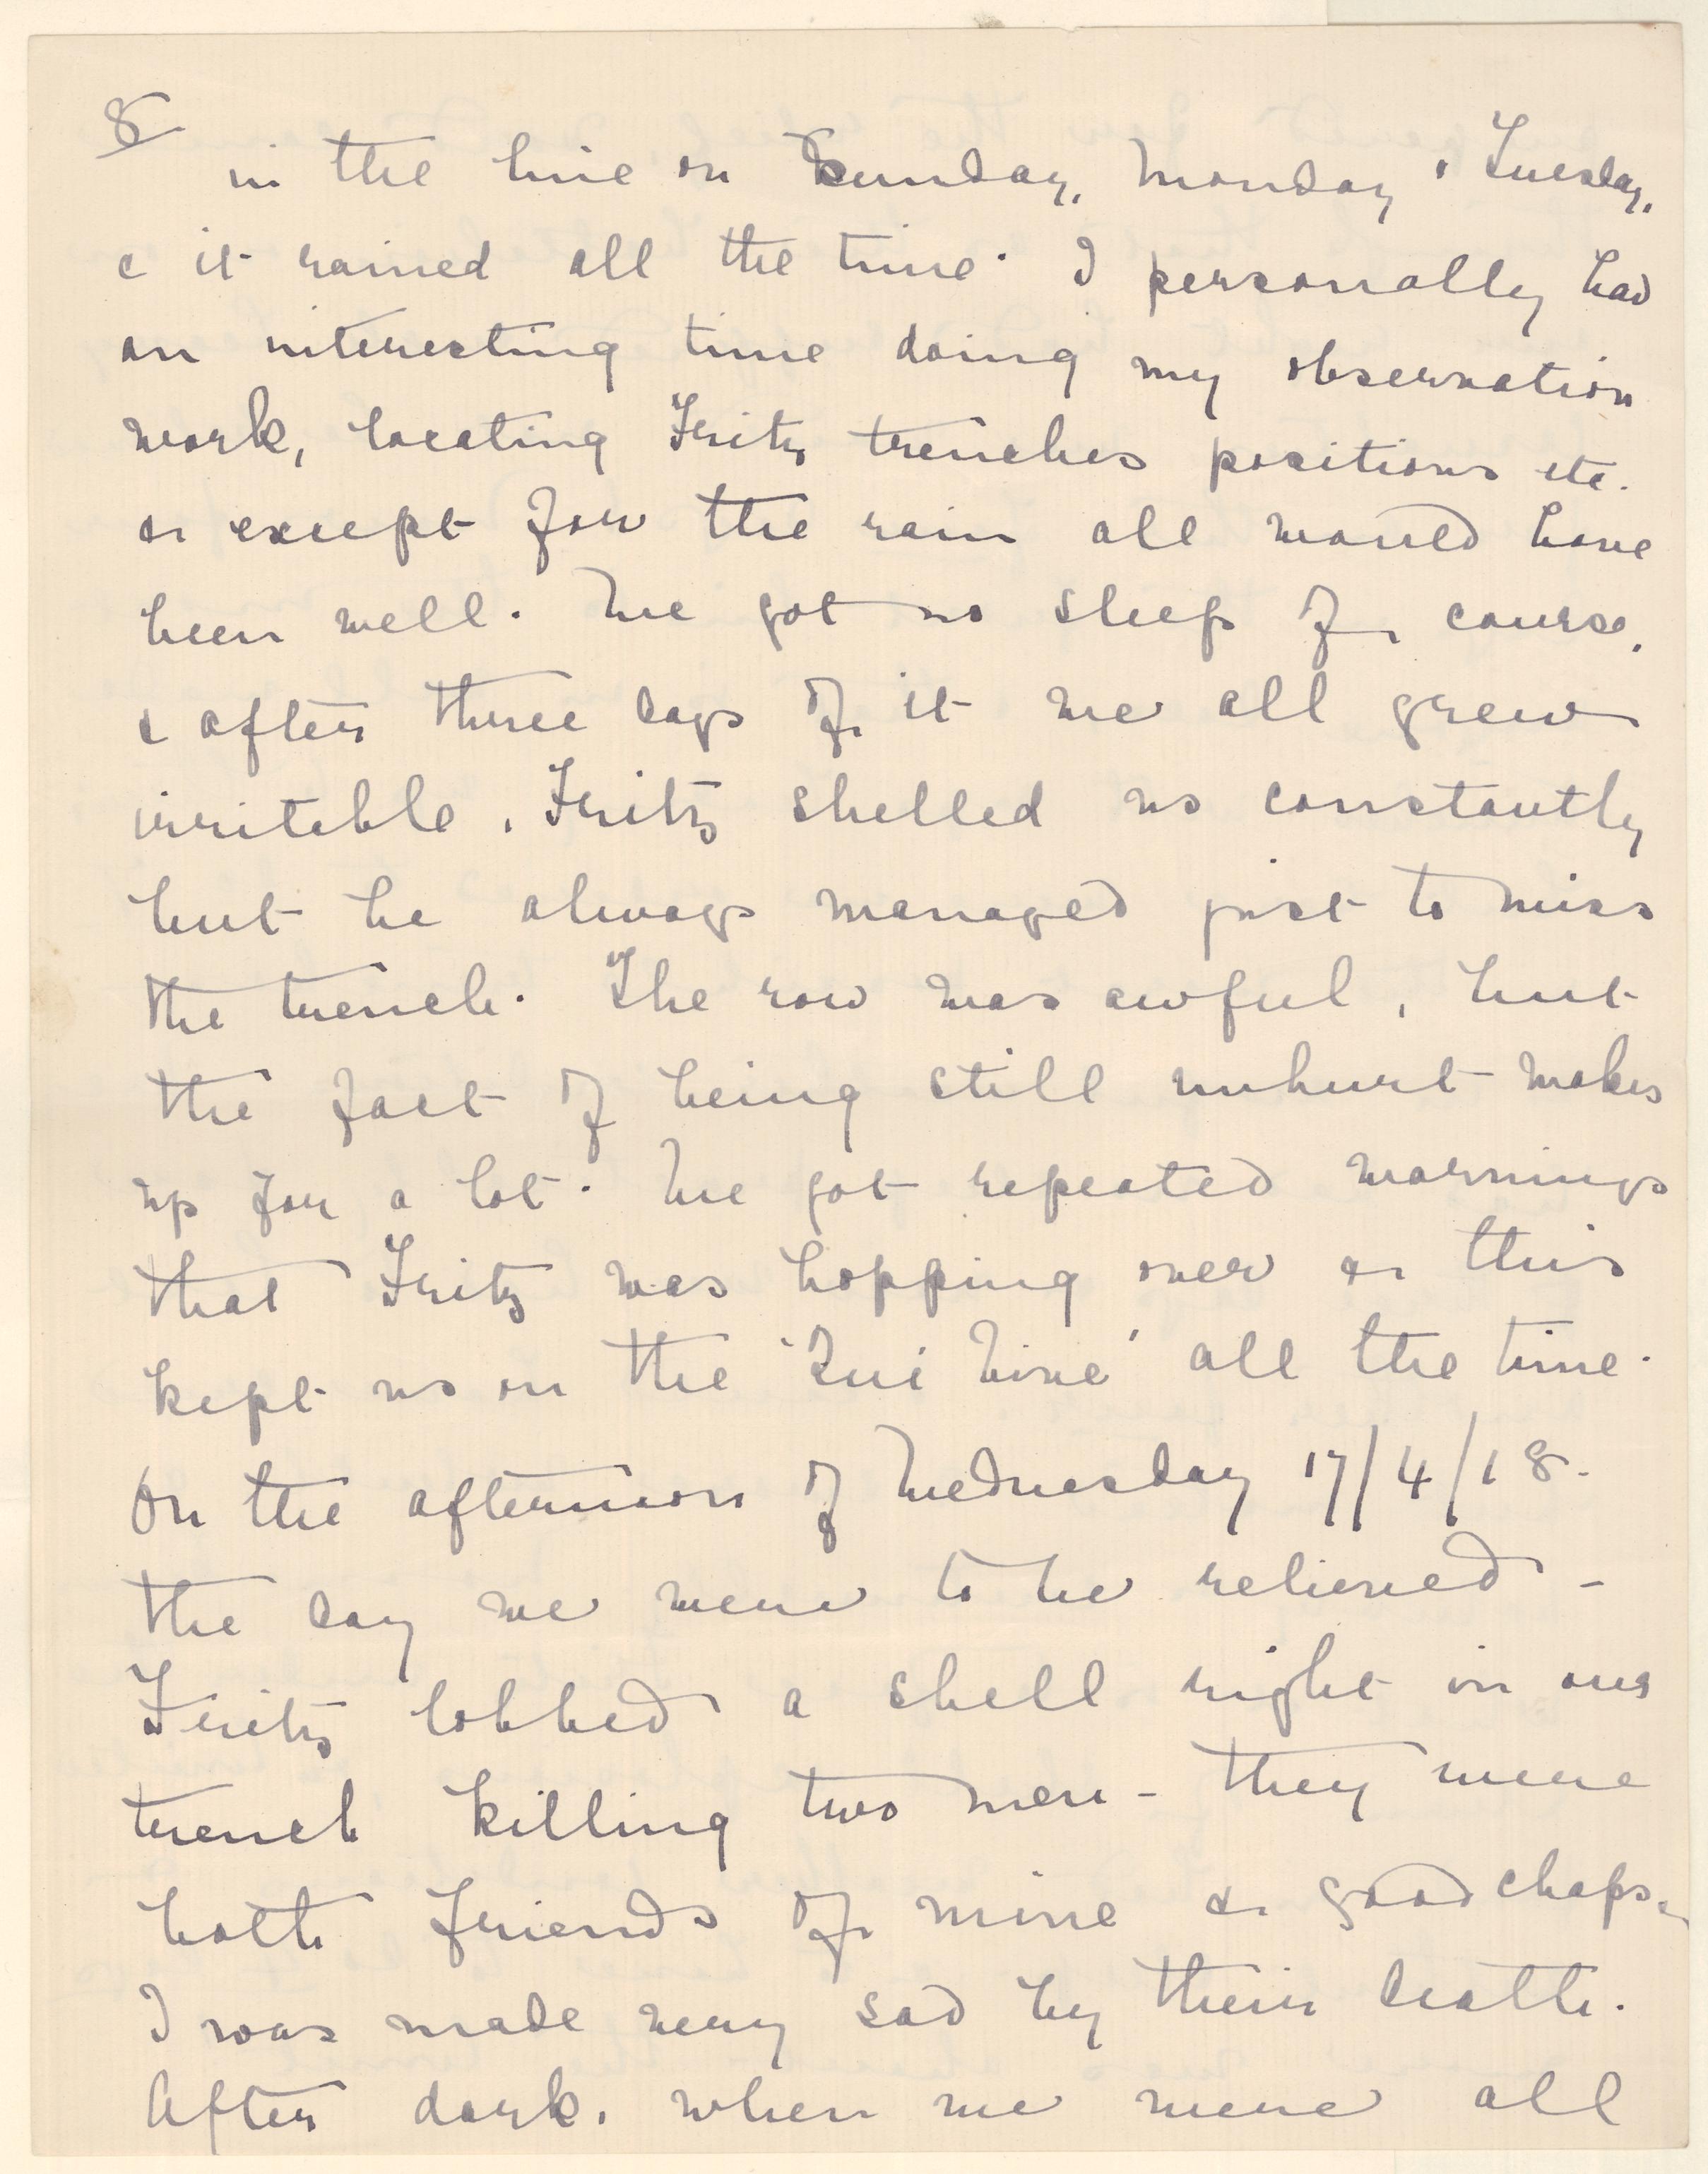 8
in the line on Sunday, Monday & Tuesday,
& it rained all the time. I personally had
an interesting time doing my observation
work, locating Fritz trenches positions etc.
& except for the rain all would have
been well. We got no sleep of course,
& after three days of it we all grew
irritable. Fritz shelled us constantly
but he always managed just to miss
the trench. The row was awful, but
the fact of being still unhurt makes
up for a lot. We got repeated warnings
that Fritz was hopping over & this
kept us on the 'Qui Vive' all the time.
On the afternoon of Wednesday 17/4/18.
the day we were to be relieved -
Fritz lobbed a shell right in our
trench killing two men - they were
both friends of mine & good chaps.
I was made very sad by their death.
After dark, when we were all